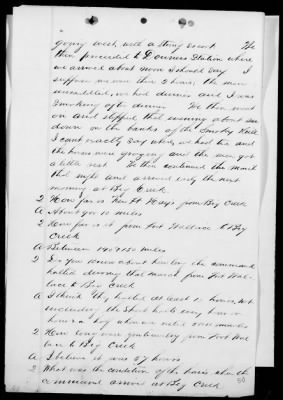 going west, with a strong escort. We
then proceeded to Downers Station where
we arrived about noon I should say. I
suppose we were there 2 hours; the men
unsaddled, we had dinner and I was
smoking after dinner. We then went
on and stopped that evening about sun
down on the banks of the Smoky Hill.
I cant exactly say where, we had tea and
the horses were grazing and the men got
a little rest. We then continued the march
that night and arrived early the next
morning at Big Creek.
Q How far is Fort Hays from Big Creek
A About 9 or 10 miles
Q How far is it from Fort Wallace to Big
Creek
A Between 140 & 150 miles
Q Do you know about how long the command
halted during that march from Fort Wal-
lace to Big Creek
A I think they halted at least 10 hours, not
including the short halts every hour or
hours a day when we
Q How long were you from Fort Wal
lace to Big Creek
A I believe it was 57 hours
Q What was the condition of the horses when the
command arrived at Big Creek